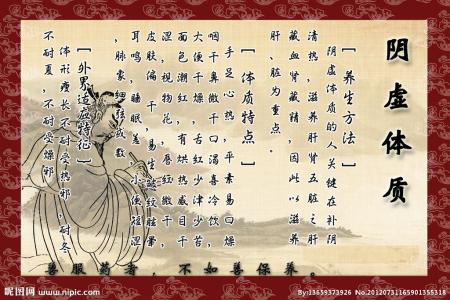 阴虚体质
[养生方法]
阴虚体质的人关键在补阴
清热，滋养肝肾五脏之肝
藏血肾藏精，因此以滋养
肝、脏为重点。
[体质特点]
手足心热，平素易口燥
咽干鼻微干口渴喜冷饮，
大便干燥，舌红少津少苔
面色潮红，有烘热感目干
涩，视物花，唇红微干，
皮肤偏干，易生皱纹眩晕
耳鸣，睡眠差，小便短涩
，脉象细弦或数。
[外界适应特征]
体形瘦长不耐受热邪，耐冬
不耐夏，不耐受燥邪
善服药者，不如善保养。
昵图网 www.nipic.com
By:13659373926 No.20120731165901355318